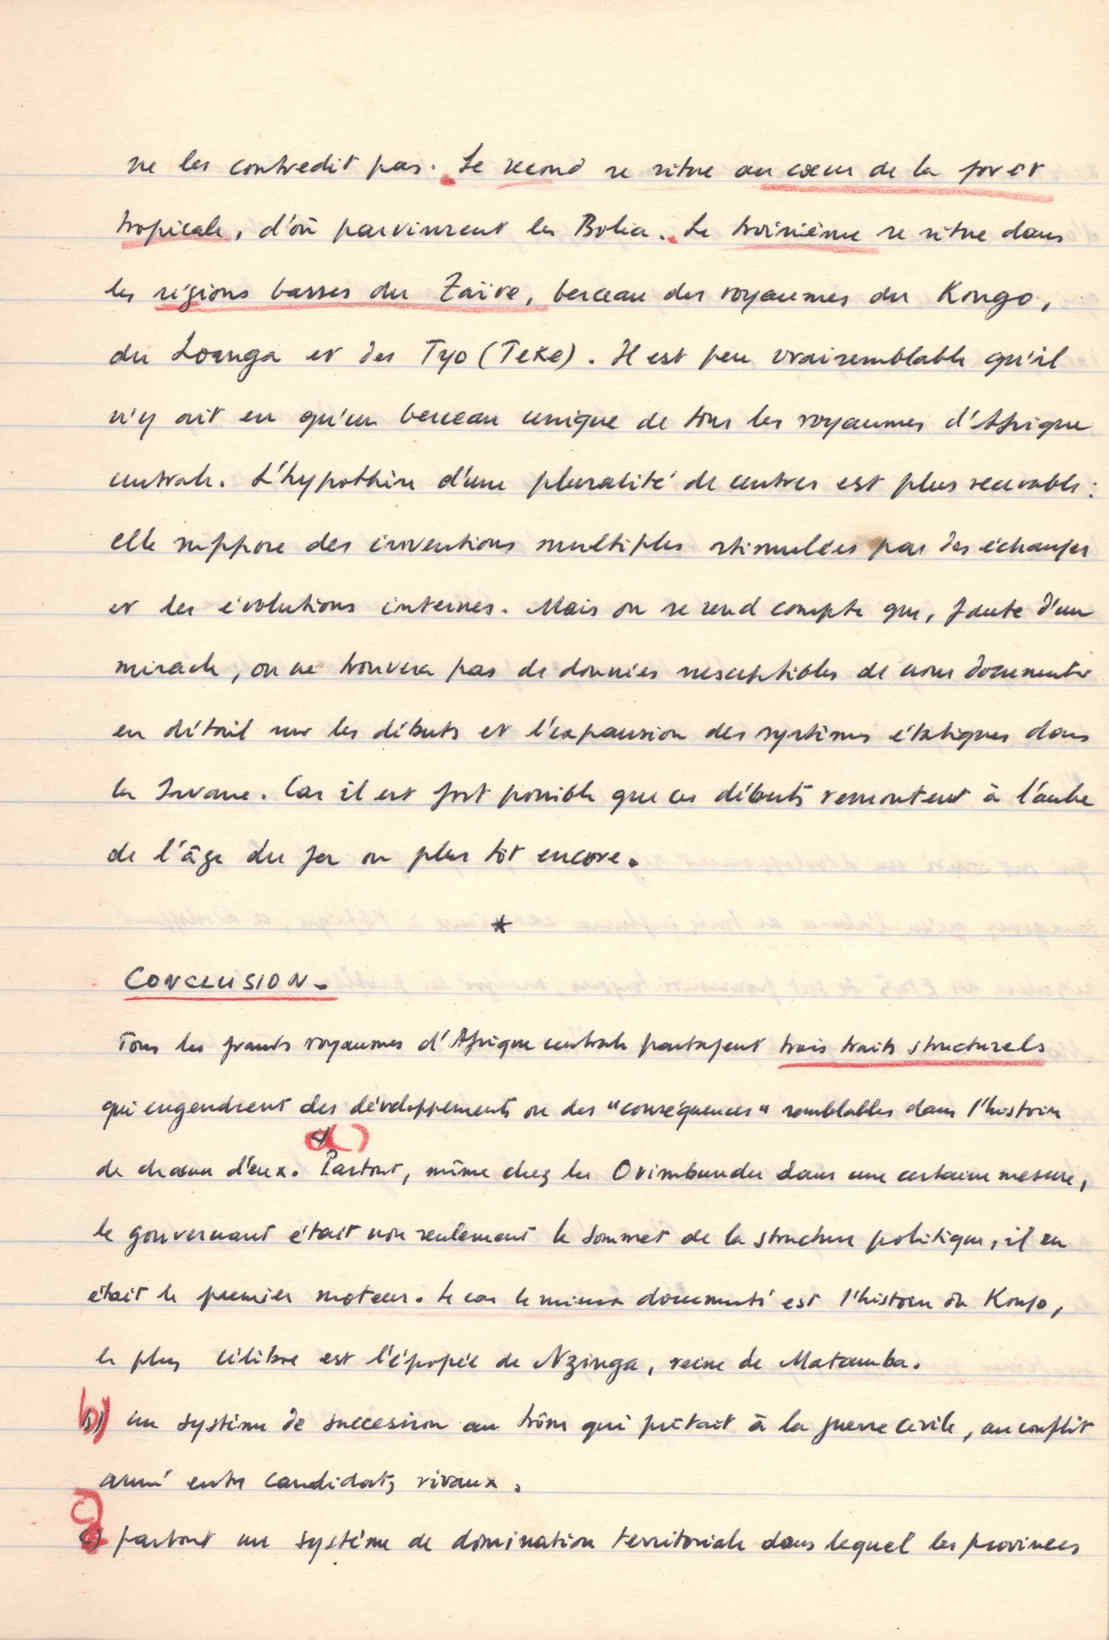 ne les contredit pas. Le second se situe au cœur de la forêt
tropicale, d'où parvinrent les Bolia. Le troisième se situe dans
les régions basses du Zaïre, berceau des royaumes du Kongo,
du Loango et des Tyo (Teke). Il est peu vraisemblable qu'il
n'y ait eu qu'un berceau unique de tous les royaumes d'Afrique
centrale. L'hypothèse d'une pluralité de centres est plus recevable :
elle suppose des inventions multiples stimulées par des échanges
et les évolutions internes. Mais on se rend compte que, faute d'un
miracle, on ne trouvera pas de données susceptibles de nous documenter
en détail sur les débuts et l'expansion des systèmes étatiques dans
la Savane. Car il est fort possible que ces débuts remontent à l'aube
de l'âge du fer ou plus tôt encore.
*
CONCLUSION -
Tous les grands royaumes d'Afrique centrale partagent trois traits structurels
qui engendrent des développements ou des "conséquences" semblables dans l'histoire
a)
de chacun d'eux. Partout, même chez les Ovimbundu dans une certaine mesure,
le gouvernant était non seulement le sommet de la structure politique, il en
était le premier moteur. Le cas le mieux documenté est l'histoire du Kongo,
la plus célèbre est l'épopée de Nzinga, reine de Matamba.
b) un système de succession au trône qui prêtait à la guerre civile, au conflit
armé entre candidats rivaux.
c) partout un système de domination territoriale dans lequel les provinces